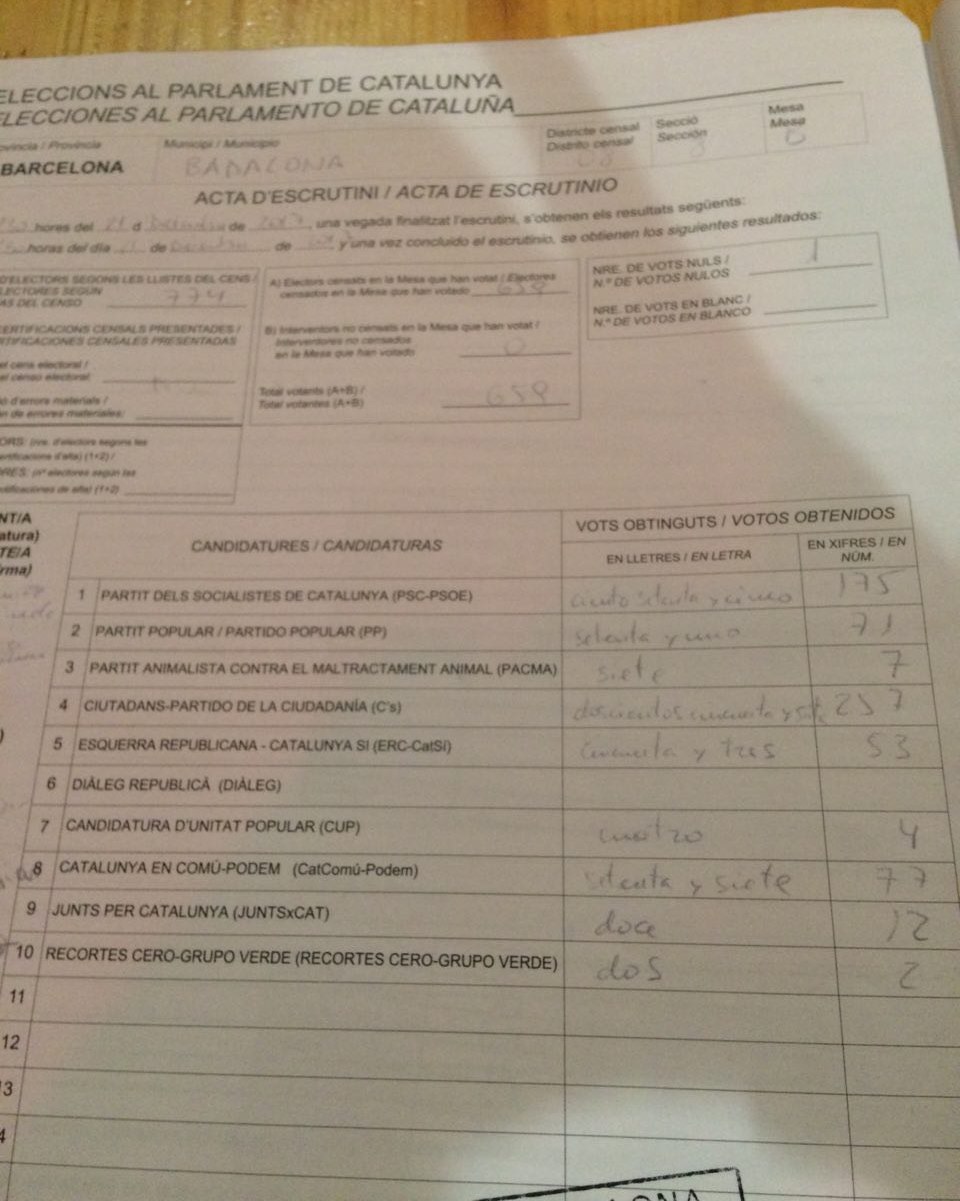 ELECCIONS AL PARLAMENT DE CATALUNYA
ELECCIONES AL PARLAMENTO DE CATALUÑA
Província / Provincia Municipi / Municipio Districte censal Secció Mesa
Distrito censal Sección Mesa
BARCELONA BADALONA
ACTA D'ESCRUTINI / ACTA DE ESCRUTINIO
hores del 21 d Diciembre de 2017, una vegada finalitzat l'escrutini, s'obtenen els resultats següents:
horas del día de Diciembre de y una vez concluido el escrutinio, se obtienen los siguientes resultados:
D'ELECTORS SEGONS LES LLISTES DEL CENS /
ELECTORES SEGÚN
AS DEL CENSO 774
CERTIFICACIONS CENSALS PRESENTADES /
RTIFICACIONES CENSALES PRESENTADAS
el cens electoral /
el censo electoral
ó d'errors materials /
n de errores materiales:
ORS: (nre. d'electors segons les
ertificacions d'alta) (1+2) /
ORES: (nº electores según las
certificaciones de alta) (1+2)
A) Electors censats en la Mesa que han votat / Electores
censados en la Mesa que han votado 659
B) Interventors no censats en la Mesa que han votat /
Interventores no censados
en la Mesa que han votado 0
Total votants (A+B) /
Total votantes (A+B) 659
NRE. DE VOTS NULS /
N.º DE VOTOS NULOS 1
NRE. DE VOTS EN BLANC /
N.º DE VOTOS EN BLANCO
NT/A
atura)
TE/A
rma)
CANDIDATURES / CANDIDATURAS VOTS OBTINGUTS / VOTOS OBTENIDOS
EN LLETRES / EN LETRA EN XIFRES / EN NÚM.
1 PARTIT DELS SOCIALISTES DE CATALUNYA (PSC-PSOE) ciento setenta y cinco 175
2 PARTIT POPULAR / PARTIDO POPULAR (PP) setenta y uno 71
3 PARTIT ANIMALISTA CONTRA EL MALTRACTAMENT ANIMAL (PACMA) siete 7
4 CIUTADANS-PARTIDO DE LA CIUDADANÍA (C's) doscientos cincuenta y siete 257
5 ESQUERRA REPUBLICANA - CATALUNYA SI (ERC-CatSí) cincuenta y tres 53
6 DIÀLEG REPUBLICÀ (DIÀLEG)
7 CANDIDATURA D'UNITAT POPULAR (CUP) cuatro 4
8 CATALUNYA EN COMÚ-PODEM (CatComú-Podem) setenta y siete 77
9 JUNTS PER CATALUNYA (JUNTSxCAT) doce 12
10 RECORTES CERO-GRUPO VERDE (RECORTES CERO-GRUPO VERDE) dos 2
11
12
3
4
LONA